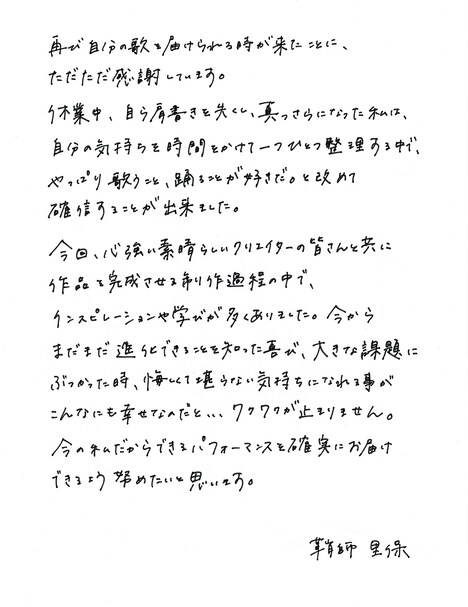 再び自分の歌を届けられる時が来たことに、
ただただ感謝しています。
休業中、自ら肩書きを失くし、真っさらになった私は、
自分の気持ちを時間をかけて一つひとつ整理する中で、
やっぱり歌うこと、踊ることが好きだ。と改めて
確信することが出来ました。
今回、心強い素晴らしいクリエイターの皆さんと共に
作品を完成させる制作過程の中で、
インスピレーションや学びが多くありました。今から
まだまだ進化できることを知った喜び、大きな課題に
ぶつかった時、悔しくて堪らない気持ちになれる事が
こんなにも幸せなのだと...ワクワクが止まりません。
今の私だからできるパフォーマンスを確実にお届け
できるよう努めたいと思います。
鞘師 里保